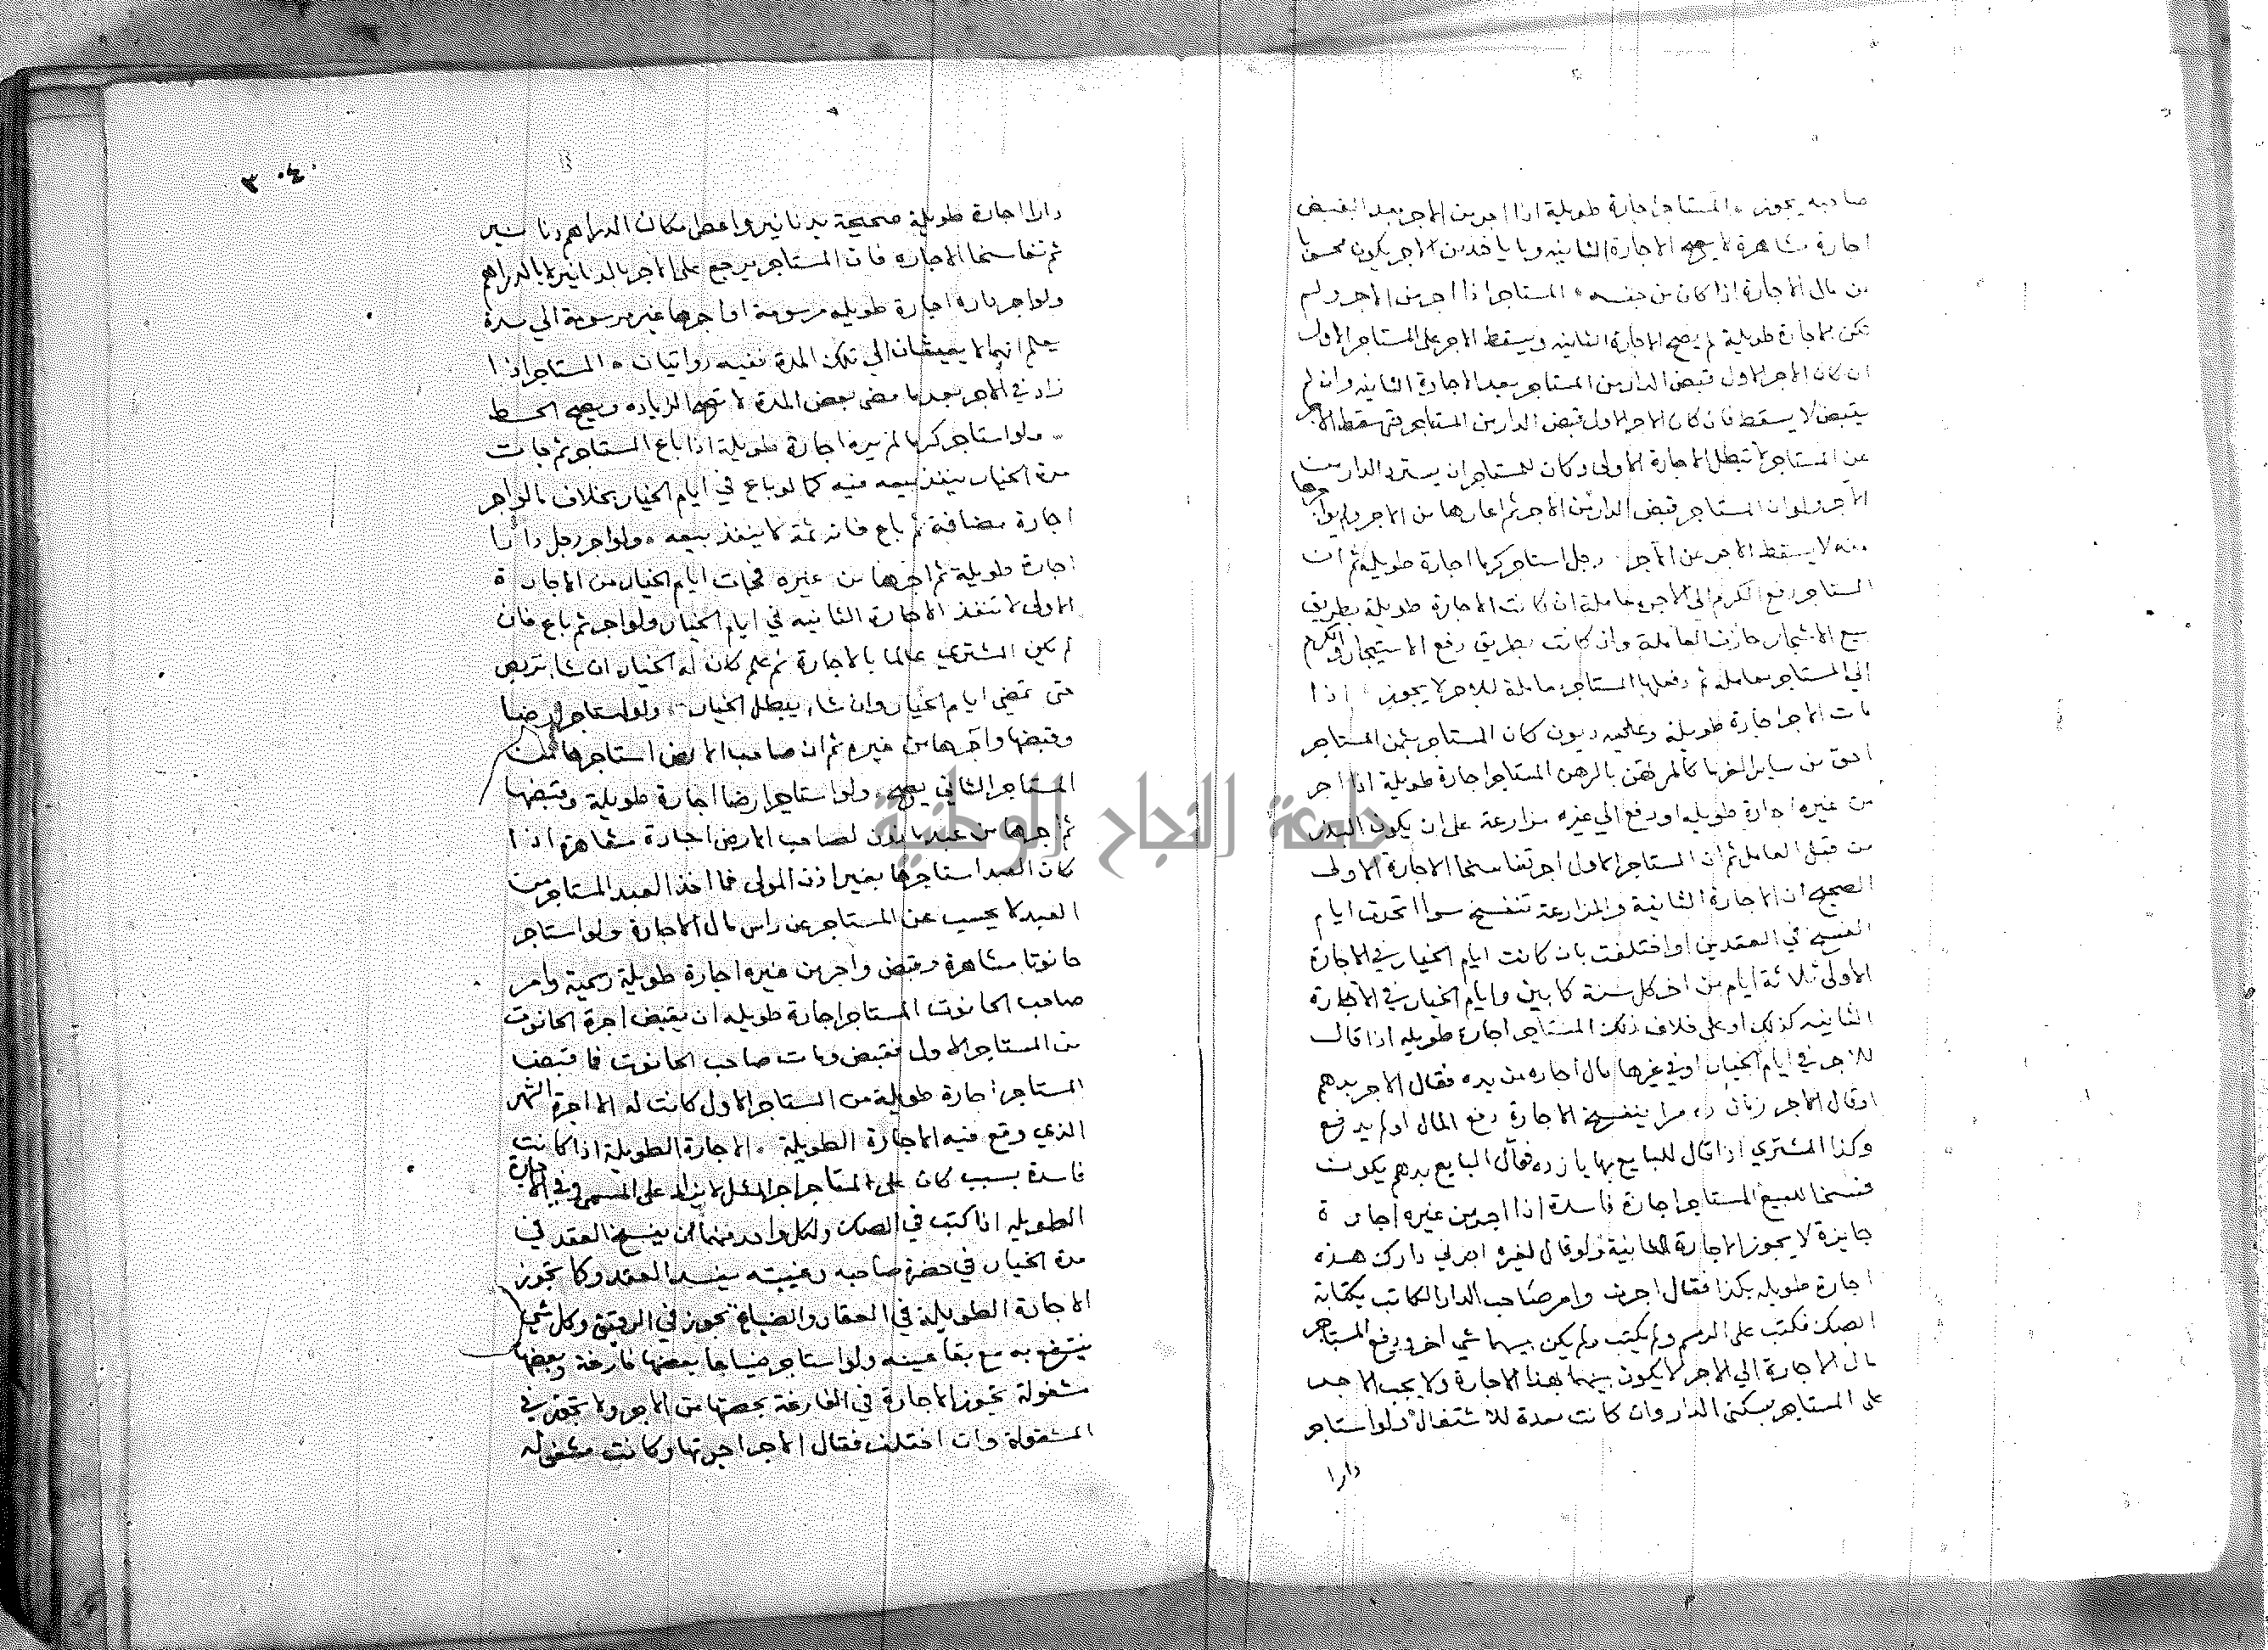 صاحبه يجوز المستاجر اجارة طويلة اذا اجر من الاجر بعد القبض
اجارة مشاهرة لا يصح الاجارة الثانية وما ياخذ من الاجر يكون محسوبا
من مال الاجارة اذا كان من جنسه المستاجر اذا اجر من الاجر ولم
تكن الاجارة طويلة لم يصح الاجارة الثانيه ويسقط الاجر على المستاجر الاول
ان كان الاجر الاول قبض الدار من المستاجر بعد الاجارة الثانيه وان لم
يقبض لا يسقط فان كان الاجر الاول قبض الدار من المستاجر حتى سقط الاجر
عن المستاجر لا تبطل الاجارة الاولى وكان للمستاجر ان يسترد الدار من
الاجر ولو ان المستاجر قبض الدار من الاجر ثم اعارها من الاجر
منه لا يسقط الاجر عن الاجر رجل استاجر كرما اجارة طويلة ثم ان
المستاجر دفع الكرم الى الاجر معاملة ان كانت الاجارة طويلة بطريق
بيع الاشجار جازت المعاملة وان كانت بطريق دفع الاشجار والكرم
الي المستاجر معامله ثم دفعها المستاجر معاملة للاجر لا يجوز اذا
مات الاجر اجارة طويلة وعليه ديون كان المستاجر بثمن المستاجر
احق من ساير الغرما كالمرتهن بالرهن المستاجر اجارة طويلة اذا اجر
من غيره اجارة طويله او دفع الي غيره مزارعة على ان يكون البذر
من قبل العامل ثم ان المستاجر الاول اجر تفاسخا الاجارة الاولى
الصحيح ان الاجارة الثانية والمزارعة تنفسخ سوا اتحدت ايام
الفسخ في العقدين او اختلفت بان كانت ايام الخيار في الاجارة
الاولى ثلاثة ايام من اخر كل سنة كابين وايام الخيار في الاجارة
الثانيه كذلك او على خلاف ذلك المستاجر اجارة طويله اذا قال
للاجر في ايام الخيار او في غيرها مال اجاره من بده فقال الاجر بدهم
او قال الاجر زمان ده مرا ينفسخ الاجارة دفع المال او لم يدفع
وكذا المشتري اذا قال للبايع بها باز ده فقال البايع بدهم يكون
فسخا للبيع المستاجر اجارة فاسدة اذا اجر من غيره اجارة
جايزة لا يجوز الاجارة الثانية ولو قال لغيره اجرني دارك هذه
اجارة طويله بكذا فقال اجرت وامر صاحب الدار الكاتب بكتابة
الصك فكتب على الرسم ولم يكتب ولم يكن بينهما شي اخر ودفع المستاجر
مال الاجارة الي الاجر لا يكون بينهما بهذا الاجارة ولا يجب الاجر
على المستاجر بسكنى الدار وان كانت معدة للاشتغال ولو استاجر
دارا
٣٠٤٠
دارا اجارة طويلة صحيحة بدنانير واعطى مكان الدراهم دنانير
ثم تفاسخا الاجاره فان المستاجر يرجع على الاجر بالدنانير لا بالدراهم
ولو اجر داره اجارة طويله مرسومة او اجرها غير مرسومة الي مدة
يعلم انهما لا يعيشان الي تلك المدة ففيه روايتان المستاجر اذا
زاد في الاجر بعد ما مضى بعض المدة لا تصح الزياده ويصح الحط
ولو استاجر كرما لم يره اجارة طويلة اذا باع المستاجر ثم فات
مدة الخيار ينفذ بيعه فيه كما لو باع في ايام الخيار بخلاف ما لو اجر
اجارة مضافة ثم باع فانه ثمة لا ينفذ بيعه ولو اجر رجل دارا
اجارة طويلة ثم اجرها من غيره فجات ايام الخيار من الاجارة
الاولى لا تنفذ الاجارة الثانيه في ايام الخيار ولو اجر ثم باع فان
لم يكن المشتري عالما بالاجارة ثم علم كان له الخيار ان شا تربص
حتى تمضي ايام الخيار وان شا يبطل الخيار ولو استاجر ارضا
وقبضها واجرها من غيره ثم ان صاحب الارض استاجرها من
المستاجر الثاني يصح ولو استاجر ارضا اجارة طويلة وقبضها
ثم اجرها من عبد ماذون لصاحب الارض اجارة مشاهرة اذا
كان العبد استاجرها بغير اذن المولى فما اخذ العبد المستاجر من
العبد لا يحسب عن المستاجر من راس مال الاجارة ولو استاجر
حانوتا مشاهرة وقبض واجر من غيره اجارة طويلة رسمية وامر
صاحب الحانوت المستاجر اجارة طويله ان يقبض اجرة الحانوت
من المستاجر الاول فقبض ومات صاحب الحانوت فما قبض
المستاجر اجارة طويلة من المستاجر الاول كانت له الا اجرة الشهر
الذي وقع فيه الاجارة الطويلة الاجارة الطويلة اذا كانت
فاسدة بسبب كان على المستاجر اجر المثل لا يزاد على المسمى وفي الاجارة
الطويله اذا كتب في الصك ولكل واحد منهما ان يفسخ العقد في
مدة الخيار في حضرة صاحبه وغيبته يفسد العقد وكما تجوز
الاجارة الطويلة في العقار والضياع تجوز في الرقيق وكل شي
ينتفع به مع بقا عينه ولو استاجر ضياعا بعضها فارغة وبعضها
مشغولة تجوز الاجارة في الفارغة بحصتها من الاجر ولا تجوز في
المشغولة وان اختلف فقال الاجر اجرتها وكانت مشغوله
جامعة النجاح الوطنية